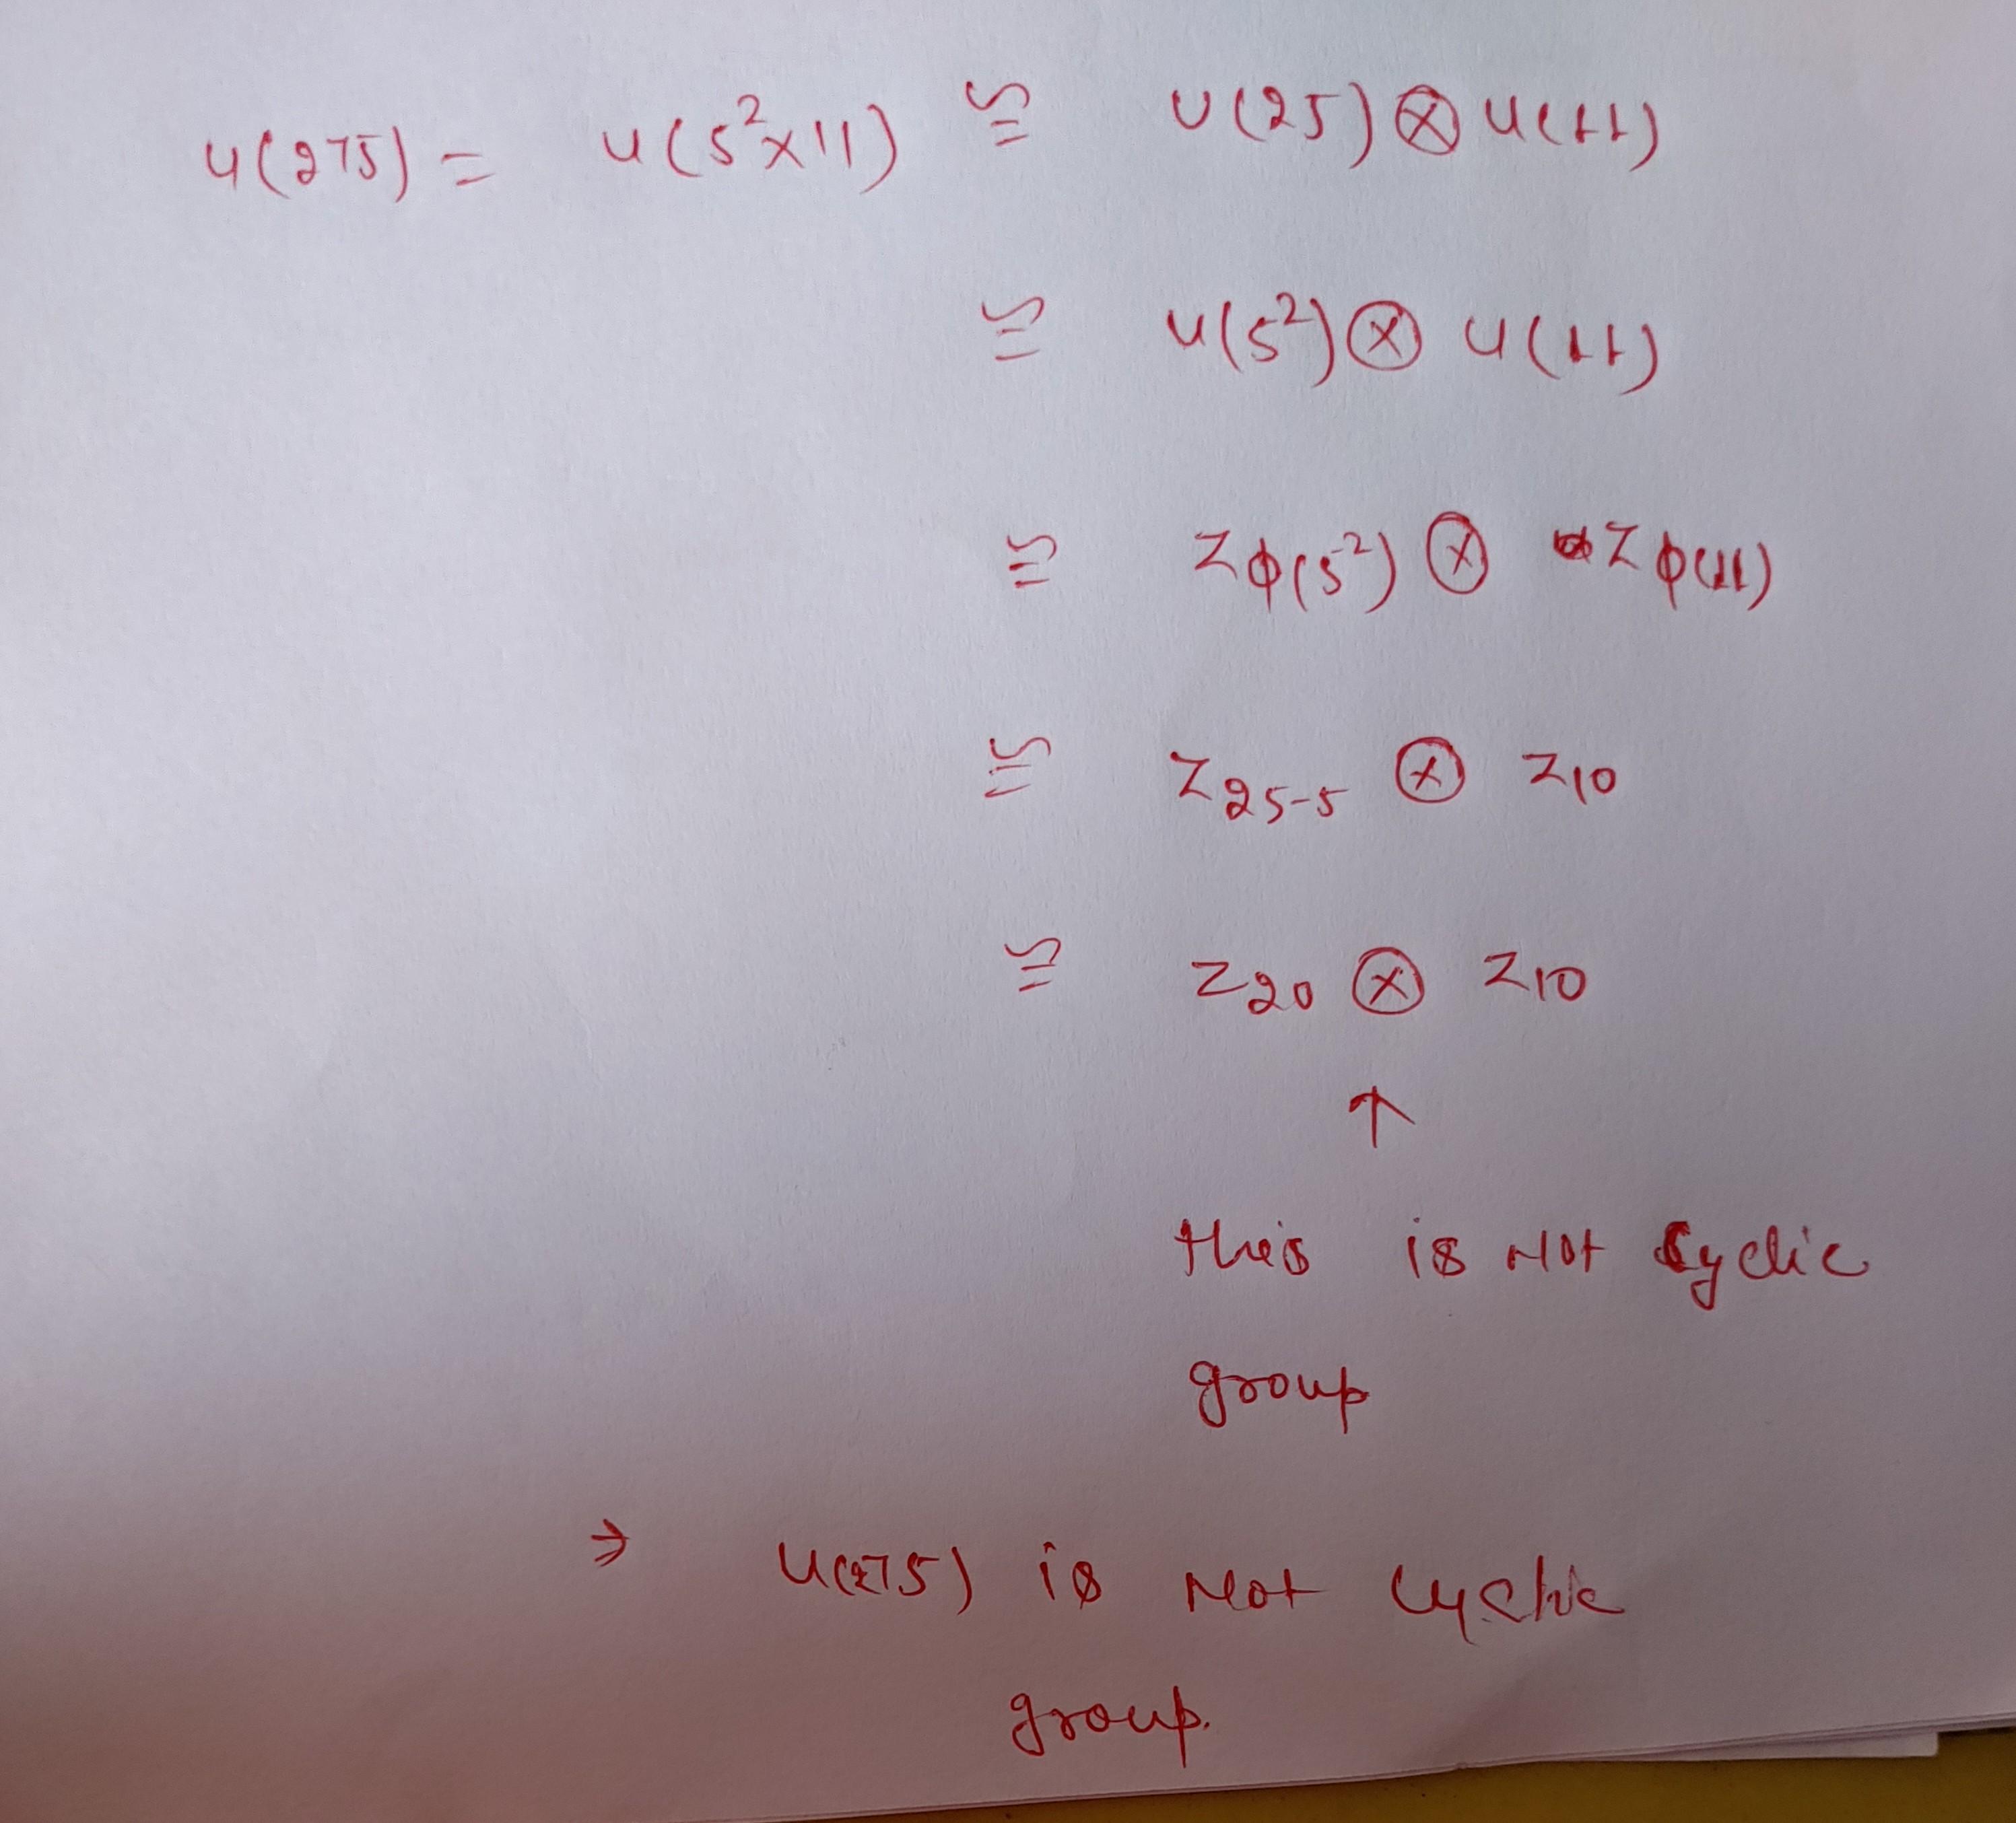 U(275) = U(5²×11) ≅ U(25) ⊗ U(11)
≅ U(5²) ⊗ U(11)
≅ Zϕ(5²) ⊗ Zϕ(11)
≅ Z25-5 ⊗ Z10
≅ Z20 ⊗ Z10
↑
this is Not cyclic
group
⇒ U(275) is Not cyclic
group.